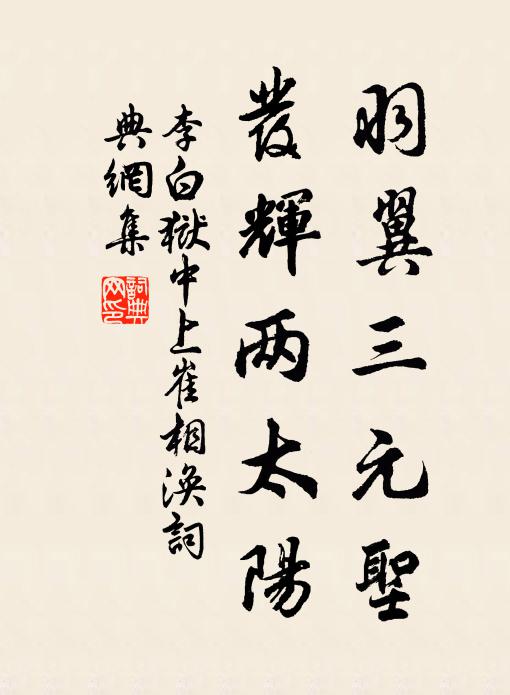 羽翼三元聖
發輝两太陽
李白獄中上崔相渙詞
典網集
詞典
网印